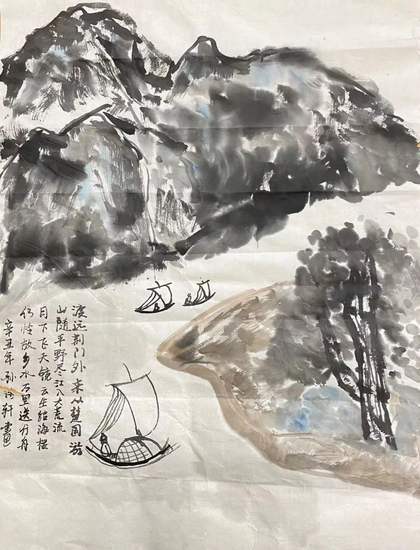 渡远荆门外来从楚国游
山随平野尽江入大荒流
月下飞天镜云生结海楼
仍怜故乡水万里送行舟
辛丑年孙轩画